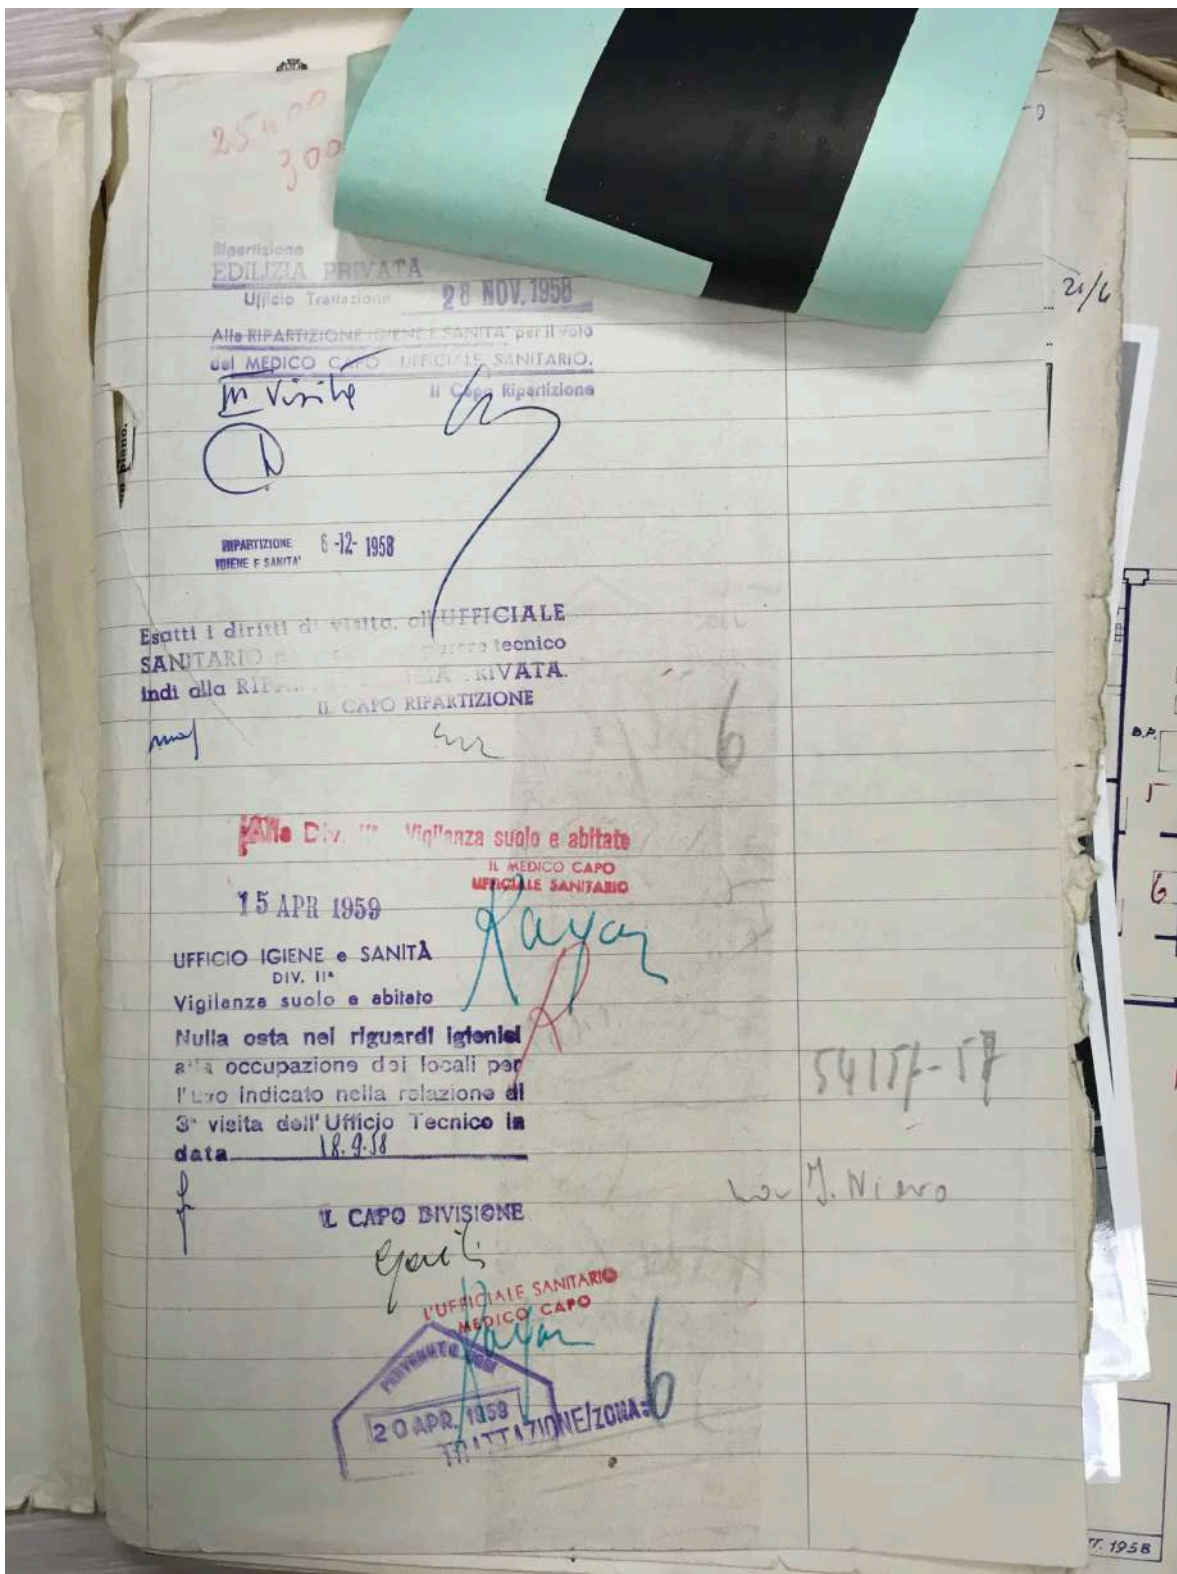 25400
300
Ripartizione
EDILIZIA PRIVATA
Ufficio Trattazione 28 NOV. 1958
Alla RIPARTIZIONE IGIENE E SANITA' per il voto
del MEDICO CAPO UFFICIALE SANITARIO.
Il Capo Ripartizione
III Visita
21/4
un piano.
RIPARTIZIONE 6-12-1958
IGIENE E SANITA'
Esatti i diritti di visita, all'UFFICIALE
SANITARIO parere tecnico
indi alla RIPA PRIVATA.
IL CAPO RIPARTIZIONE
6
B.P.
5
6
Alla Div. III Vigilanza suolo e abitato
IL MEDICO CAPO
UFFICIALE SANITARIO
15 APR 1959
UFFICIO IGIENE e SANITÀ
DIV. IIª
Vigilanza suolo e abitato
Nulla osta nei riguardi igienici
alla occupazione dei locali per
l'uso indicato nella relazione di
3ª visita dell'Ufficio Tecnico in
data 18.9.58
54157-57
Nievo
IL CAPO DIVISIONE
L'UFFICIALE SANITARIO
MEDICO CAPO
PERVENUTO OGGI
20 APR. 1959
TRATTAZIONE/ZONA: 6
TT. 1958